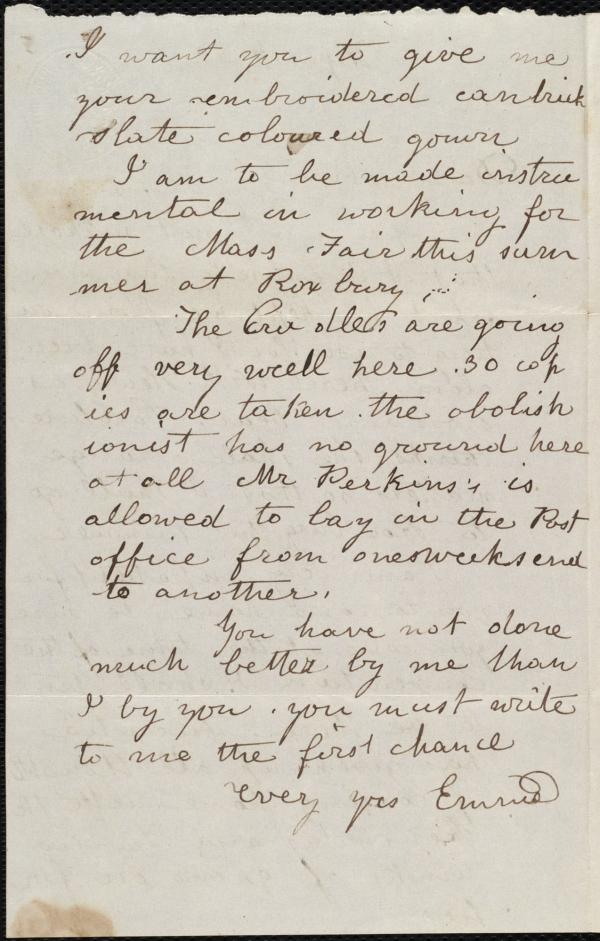 I want you to give me
your embroidered cambrick
slate coloured gown
I am to be made instru
mental in working for
the Mass Fair this sum
mer at Roxbury
The Cradles are going
off very well here . 30 cop
ies are taken . the abolish
ionist has no ground here
at all Mr Perkins's is
allowed to lay in the Post
office from ones weeks end
to another.
You have not done
much better by me than
I by you . you must write
to me the first chance
every yrs Emma